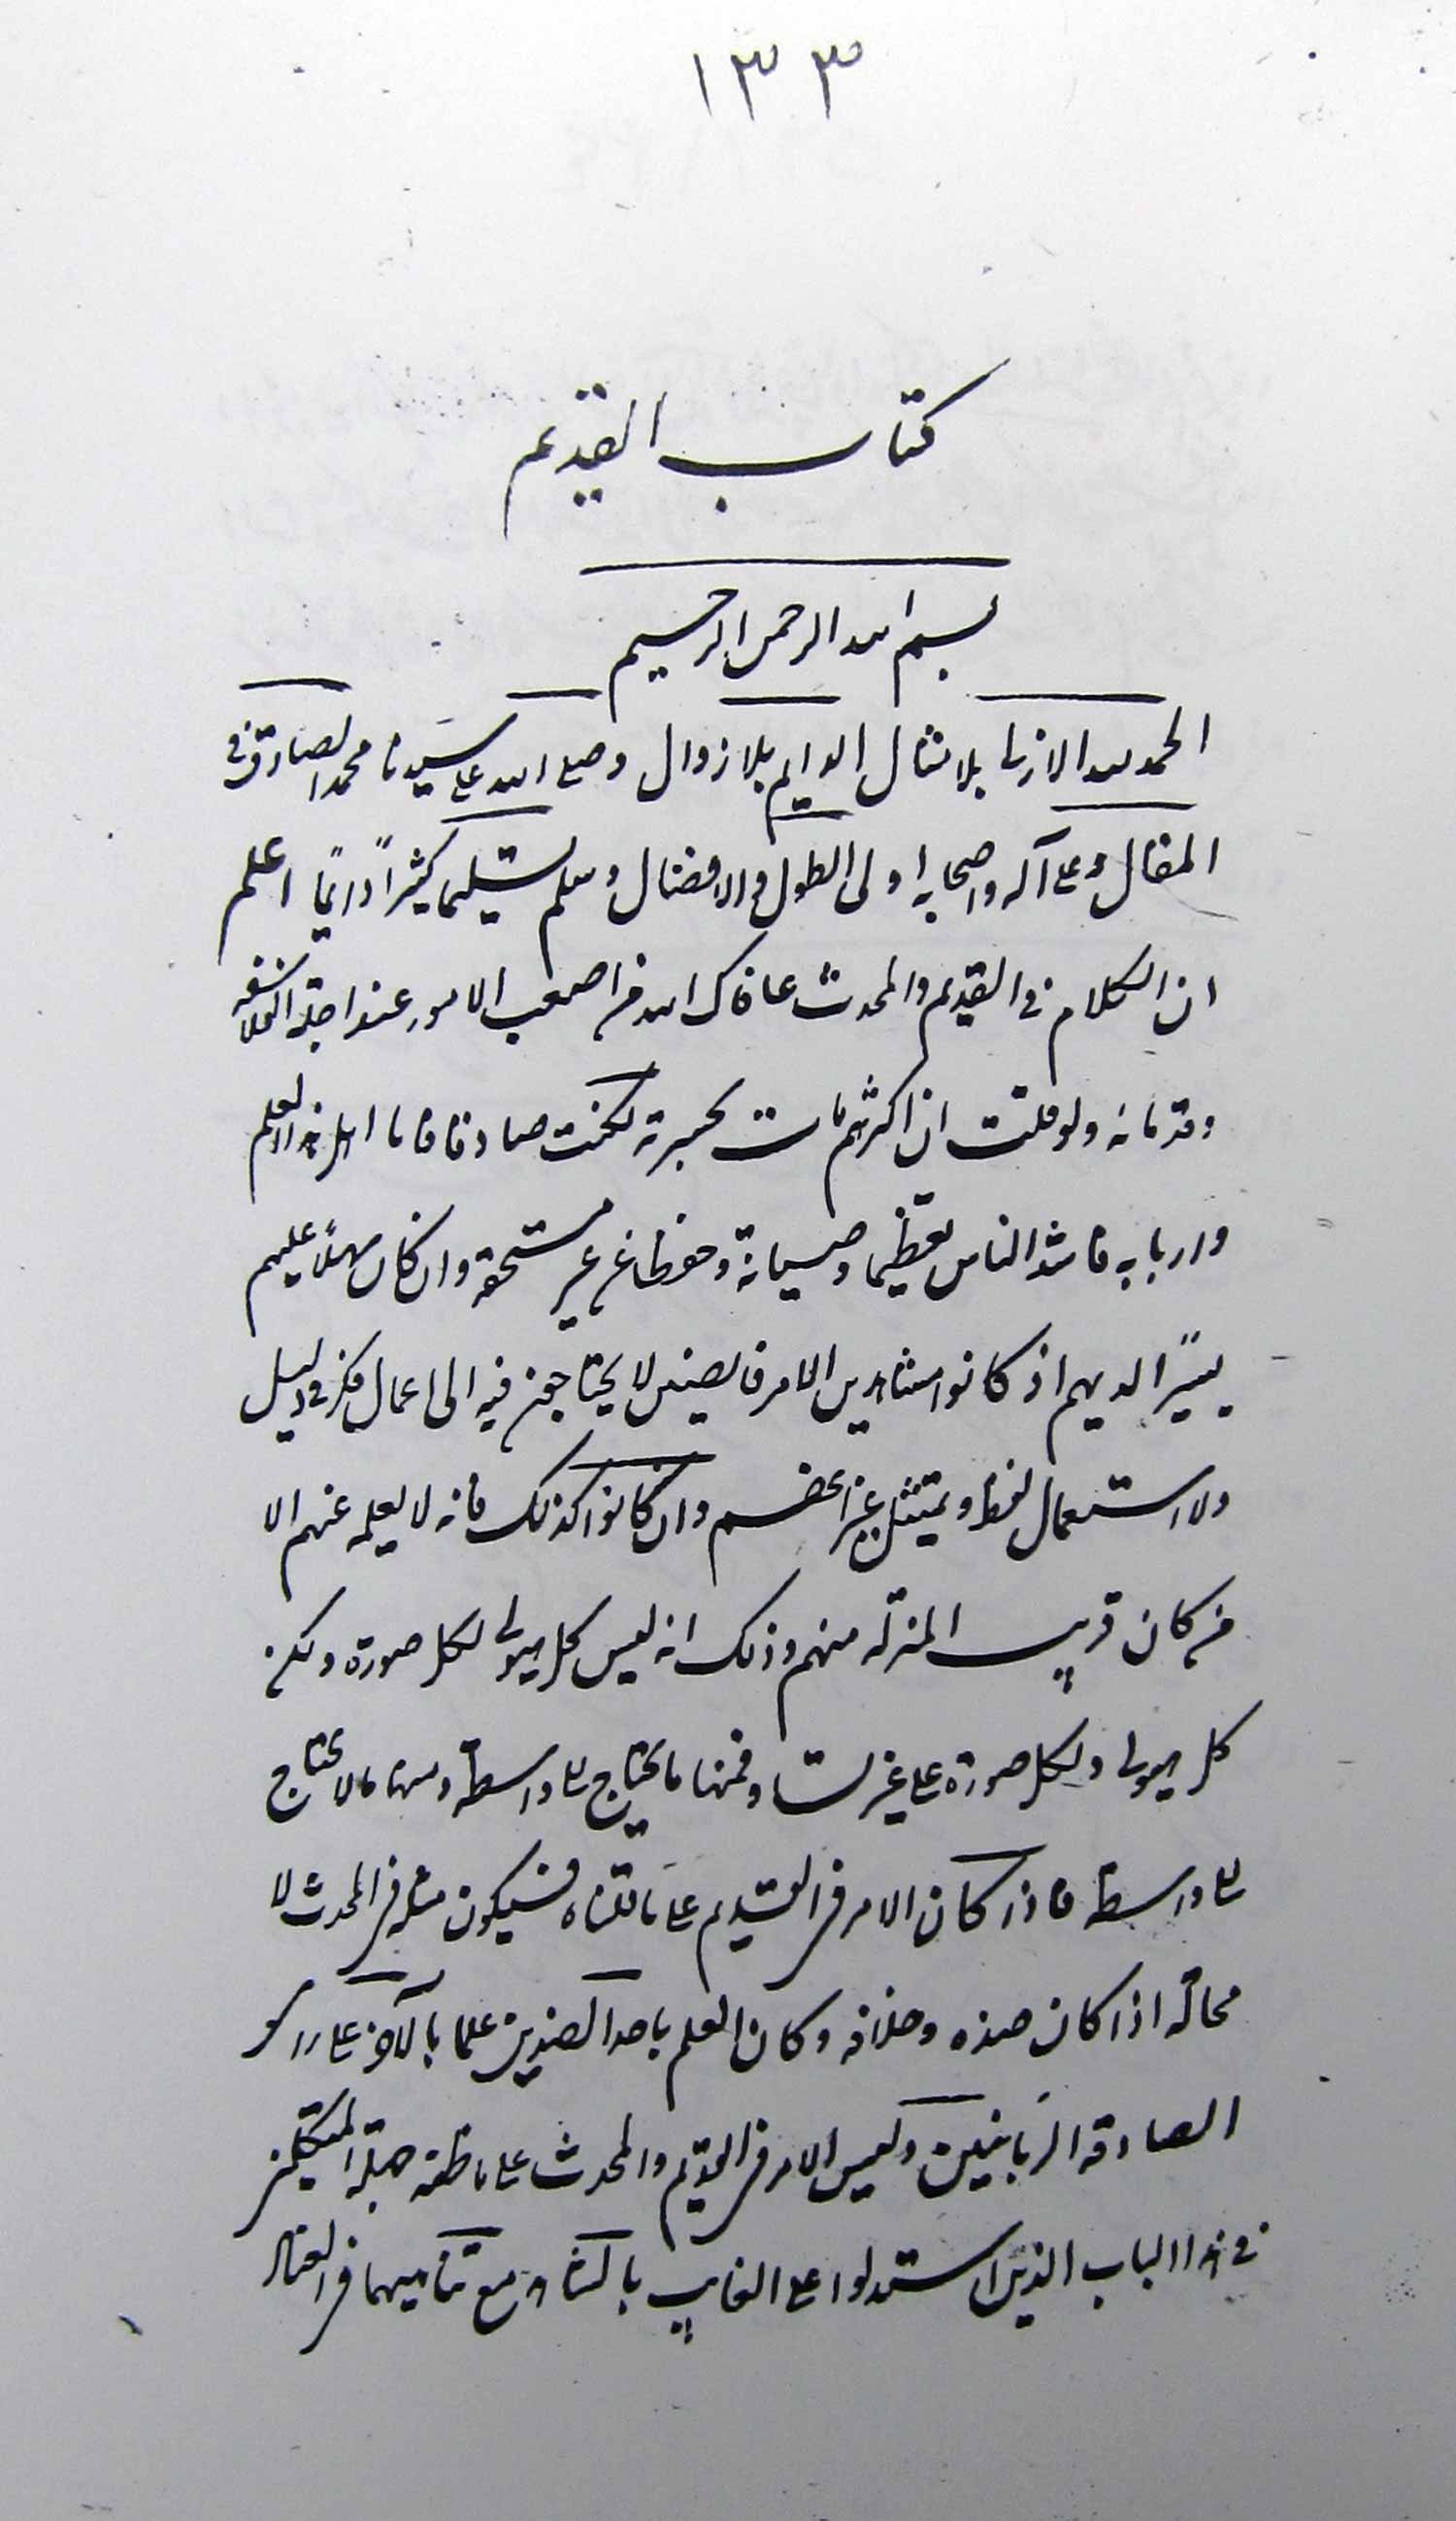 ١٣٣
كتاب القديم
بسم الله الرحمن الرحيم
الحمد لله الازلى بلا مثال الدايم بلا زوال وصلى الله على سيدنا محمد الصادق فى
المقال وعلى آله واصحابه اولى الطول والافضال وسلم تسليما كثيراً دائماً اعلم
ان الكلام فى القديم والمحدث عافاك الله من اصعب الامور عند اجلة الفلاسفه
وقدمائه ولو قلت ان اكثرهم مات بحسرته لكنت صادقا فاما اهل هذا العلم
واربابه فاشد الناس تعظيما وصيانة وحفظا عن غير مستحقه وان كان سهلاً عليهم
يسيرًا لديهم اذ كانوا مشاهدين الامر فالصين لا يحتاجون فيه الى اعمال فكر فى دليل
ولا استعمال لفظ و عن خصم وان كانوا كذلك فانه لا يعلمه عنهم الا
من كان قريب المنزلة منهم وذلك انه ليس كل هيولى لكل صورة ولكن
كل هيولى ولكل صورة على غير فمنها ما يحتاج الى واسطة ومنها ما لا يحتاج
الى واسطه فاذا كان الامر فى القديم على ما قلناه فسيكون مثله فى المحدث لا
محالة اذا كان ضده وخلافه وكان العلم باحد الضدين علما بالآخر على راى
الصادقه الربانيين وليس الامر فى القديم والمحدث على ما ظنه جلة المتكلمين
فى هذا الباب الذين استدلوا على الغايب بالشاهد مع تنافيهما فى